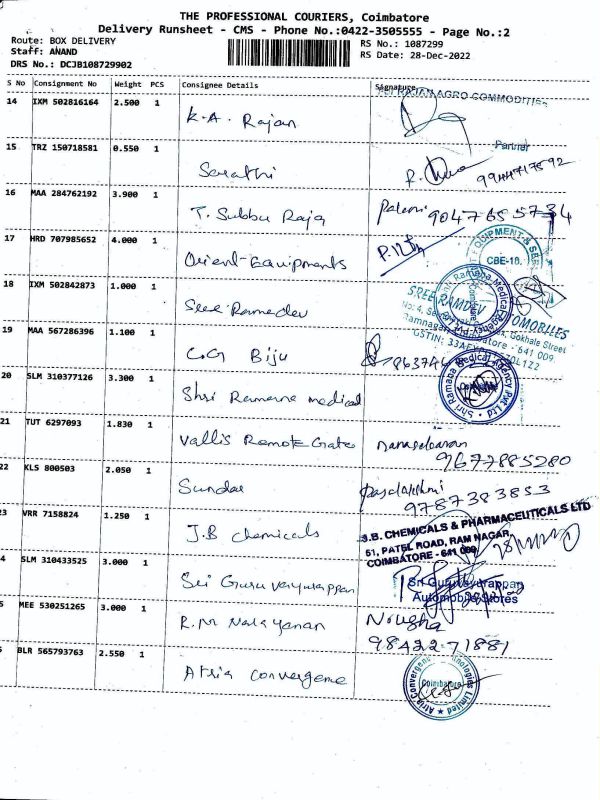 THE PROFESSIONAL COURIERS, Coimbatore
Delivery Runsheet - CMS - Phone No.:0422-3505555 - Page No.:2
Route: BOX DELIVERY
Staff: ANAND
DRS No.: DCJB108729902
RS No.: 1087299
RS Date: 28-Dec-2022
S No Consignment No Weight PCS Consignee Details Signature
14 IXM 502816164 2.500 1 K.A. Rajan
RAJAN AGRO COMMODITIES
Partner
15 TRZ 150718581 0.550 1 Sarathi
16 MAA 284762192 3.900 1 T. Subbu Raja
17 HRD 707985652 4.000 1 Orient-Equipments
EQUIPMENT &
CBE-18.
18 IXM 502842873 1.000 1 Sree Ramadev
SREE RAMDEV
19 MAA 567286396 1.100 1 C.G Biju
20 SLM 310377126 3.300 1 Shri Ramana medical
Shri Ramana Medical Agency Pvt Ltd
21 TUT 6297093 1.830 1 Vallis Remote Gates
9677885280
22 KLS 800503 2.050 1 Sundar
9787383853
23 VRR 7158824 1.250 1 J.B chemicals
J.B. CHEMICALS & PHARMACEUTICALS LTD
51, PATEL ROAD, RAM NAGAR,
COIMBATORE - 641 009
4 SLM 310433525 3.000 1 Sri Guruvayurappan
Sri Guruvayurappan
Automobile Stores
5 MEE 530251265 3.000 1 R.M Narayanan
98422 71881
BLR 565793763 2.550 1 Atria convergene
Atria Convergence Technologies Limited
Coimbatore